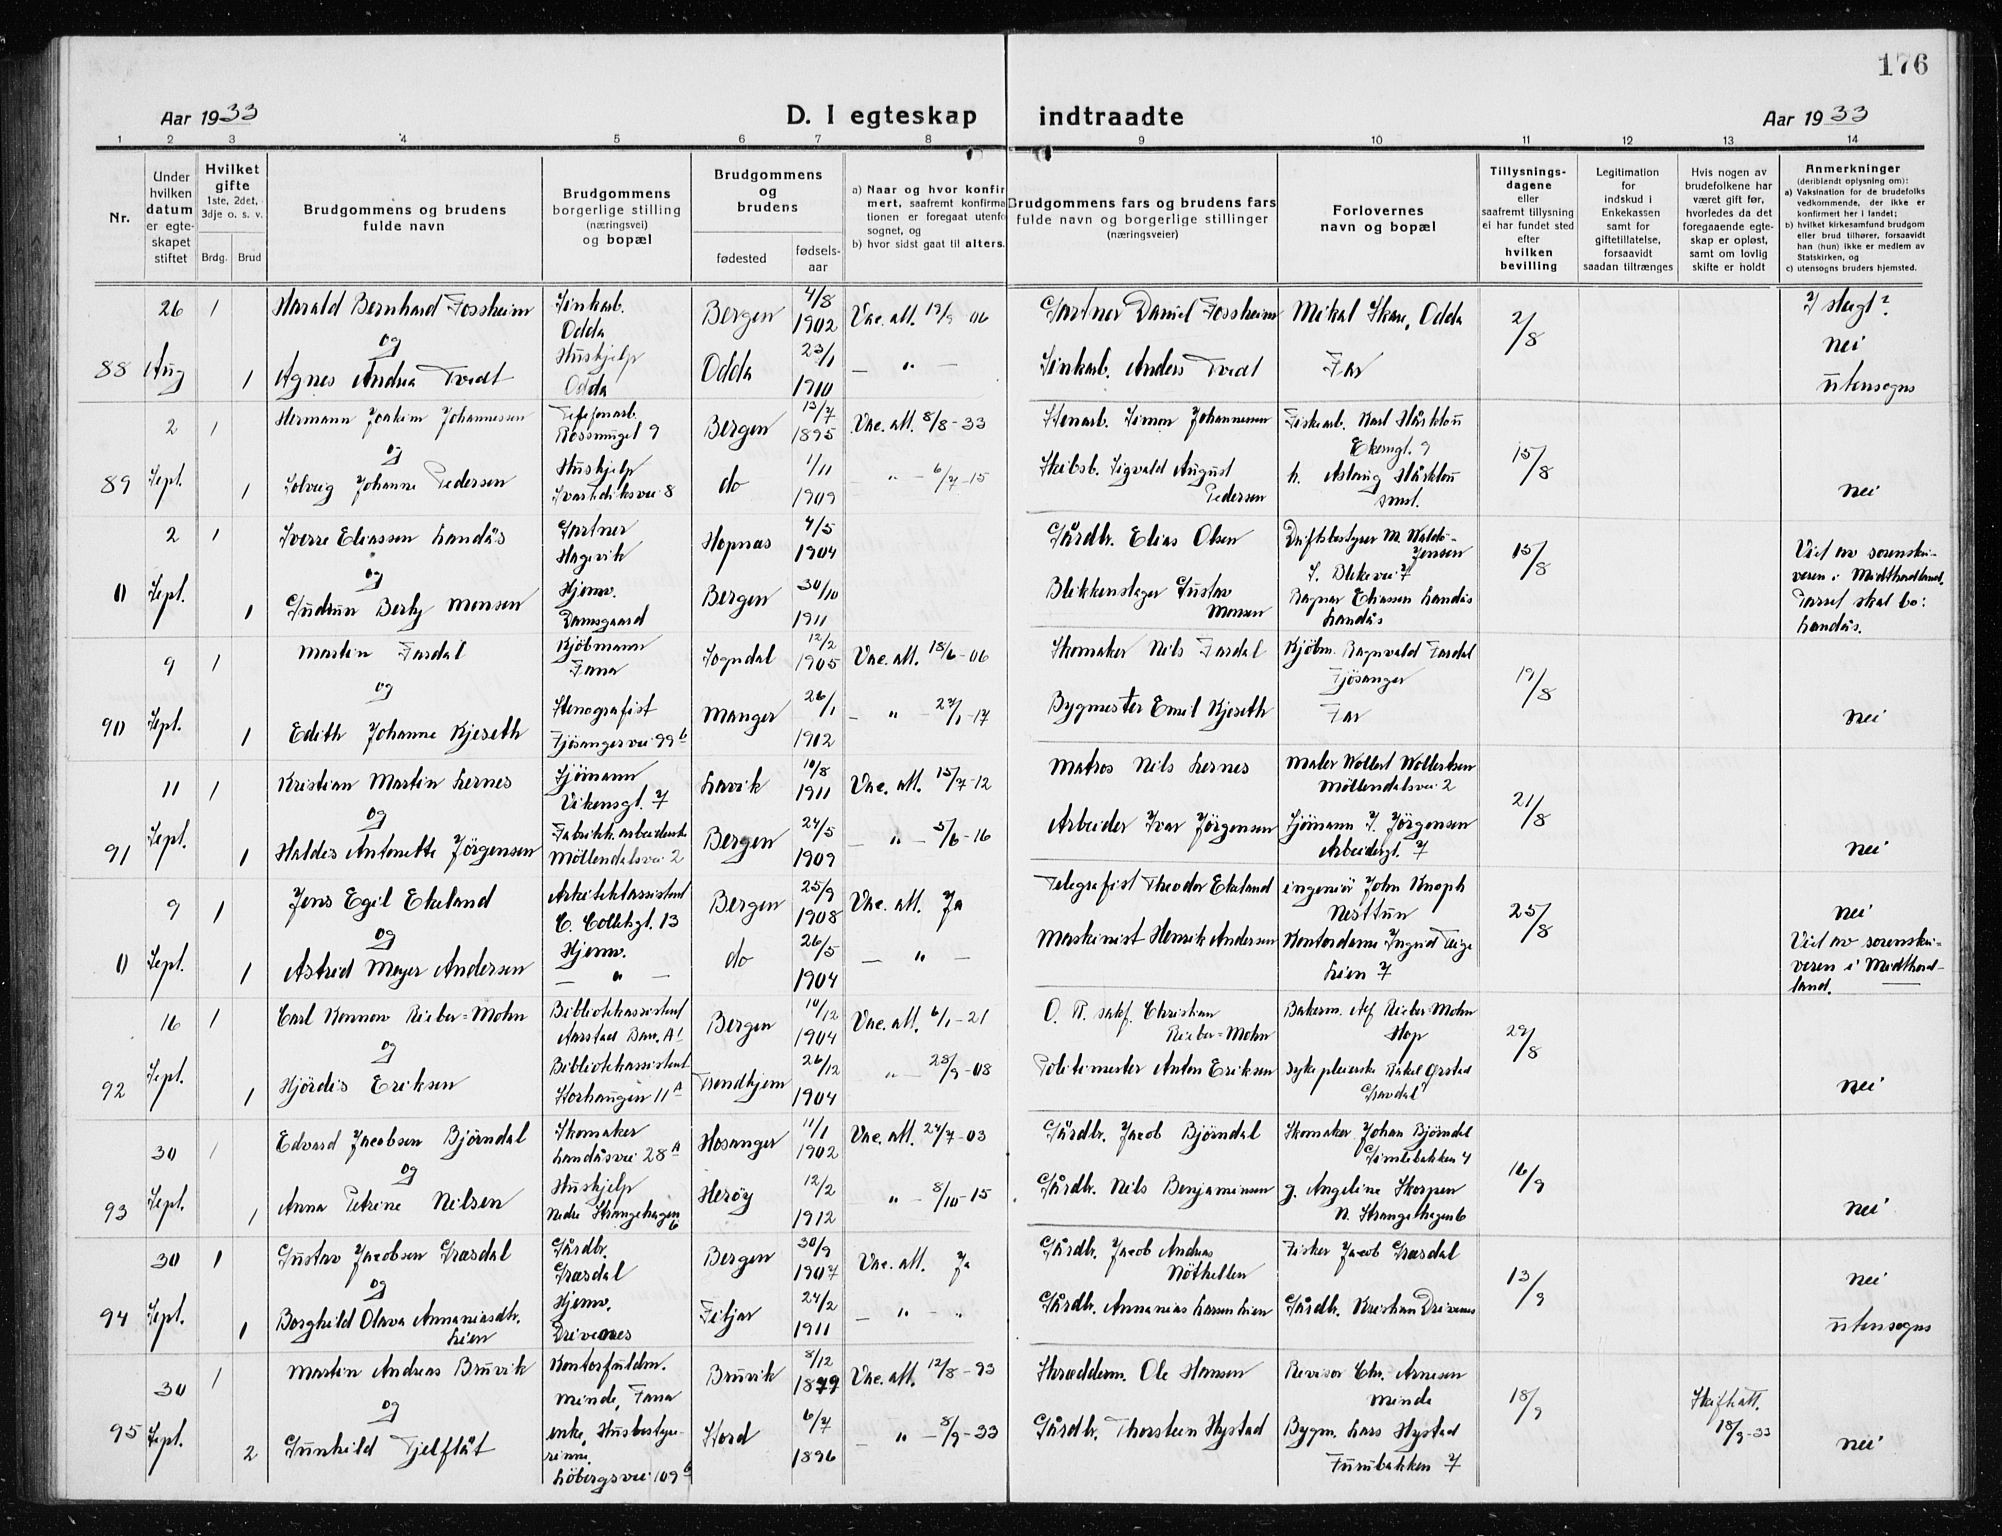 176
Aar 1933
D. I egteskap indtraadte
Aar 1933
1 2 3 4 5 6 7 8 9 10 11 12 13 14
Nr.
Under
hvilken
datum
er egte-
skapet
stiftet
Hvilket
gifte
1ste, 2det,
3dje o. s. v.
Brdg. Brud
Brudgommens og brudens
fulde navn
Brudgommens
borgerlige stilling
(næringsvei)
og bopæl
Brudgommens
og
brudens
fødested
fødsels-
aar
a) Naar og hvor konfir
mert, saafremt konfirma
tionen er foregaat utenfo
sognet, og
b) hvor sidst gaat til alters.
Brudgommens fars og brudens fars
fulde navn og borgerlige stillinger
(næringsveier)
Forlovernes
navn og bopæl
Tillysnings-
dagene
eller
saafremt tillysning
ei har fundet sted
efter
hvilken
bevilling
Legitimation
for
indskud i
Enkekassen
samt for
giftetillatelse,
forsaavidt
saadan tiltrænges
Hvis nogen av
brudefolkene har
været gift før,
hvorledes da det
foregaaende egte-
skap er opløst,
samt om lovlig
skifte er holdt
Anmerkninger
(deriblandt oplysning om):
a) Vaksination for de brudefolks
vedkommende, der ikke er
konfirmert her i landet;
b) hvilket kirkesamfund brudgom
eller brud tilhører, forsaavidt
han (hun) ikke er medlem av
Statskirken, og
c) utensogns bruders hjemsted.
88
26 Aug
1
Harald Bernhard Fossheim
og
1
Agnes Andrea Tvedt
Sinkarb.
Odda
Hushjelp
Odda
Bergen 4/8 1902
Odda 23/1 1910
Vac. att. 19/9 06
— " —
Gartner Daniel Fossheim
Sinkarb. Anders Tvedt
Mikal Skare, Odda
Far
2/8
I slegt?
nei
utensogns
89
2 Sept.
1
Hermann Joakim Johannesen
og
1
Solveig Johanne Pedersen
Telefonarb.
Rossmuget 9
Hushjelp
Svartediksvei 8
Bergen 13/7 1895
do 1/11 1909
Vac. att. 8/8-33
" - 6/7-15
Stenarb. Simon Johannesen
Skibsb. Sigvald August
Pedersen
Fiskearb. Karl Hårklou
Ekerngt. 9
h. Aslaug Hårklou
smst.
15/8
nei
0
2 Sept.
1
Sverre Eliassen Landås
og
1
Gudrun Berly Monsen
Gartner
Hagevik
Hjemv.
Damsgaard
Hopnæs 4/5 1904
Bergen 30/10 1911
Gårdbr. Elias Olsen
Blikkenslager Gustav
Monsen
Driftsbestyrer M. Waldo-
Jensen
S. Blekevei 7
Ragnar Eliassen Landås
Landås
15/8
Viet av sorenskri-
veren i Midthordland.
Parret skal bo:
Landås.
90
9 Sept.
1
Martin Fardal
og
1
Edith Johanne Kjeseth
Kjöbmann
Fana
Stenografist
Fjösangervei 99 b
Sogndal 12/2 1905
Manger 26/1 1912
Vac. att. 18/6-06
— " — 27/1-17
Skomaker Nils Fardal
Bygmester Emil Kjeseth
Kjøbm. Ragnvald Fardal
Fjösanger
Far
19/8
nei
91
11 Sept.
1
Kristian Martin Lernes
og
1
Haldis Antonette Jörgensen
Sjömann
Vikensgt. 7
Fabrikkarbeiderske
Möllendalsvei 2
Lavik 10/8 1911
Bergen 24/5 1909
Vac. att. 15/7-12
— " — 5/6-16
Matros Nils Lernes
Arbeider Ivar Jörgensen
Maler Wollert Wollertsen
Möllendalsvei 2
Sjömann I. Jörgensen
Arbeidergt. 7
21/8
nei
0
9 Sept.
1
Jens Egil Ekeland
og
1
Astrid Meyer Andersen
Arkitektassistent
C. Colletsgt. 13
Hjemv.
— " —
Bergen 25/9 1908
do 26/5 1904
Vac. att. Ja
— " —
Telegrafist Theodor Ekeland
Maskinist Henrik Andersen
ingeniör John Knoph
Nesttun
Kontordame Ingrid Teige
Lien 7
25/8
nei
Viet av sorenskri-
veren i Midthord-
land.
92
16 Sept.
1
Carl Konnow Rieber-Mohn
og
1
Hjördis Eriksen
Bibliotekassistent
Aarstad Bar. A'
Bibliotekassistent
Storhaugen 11 A
Bergen 10/12 1904
Trondhjem 26/12 1904
Vac. att. 6/1-21
" 28/9-08
O. R. sakf. Christian
Rieber-Mohn
Politimester Anton Eriksen
Bakerm. Alf Rieber-Mohn
Hop
sykepleierske Rakel Ørstad
Gravdal
29/8
nei
93
30 Sept.
1
Edvard Jacobsen Björndal
og
1
Anna Petrine Nilsen
Skomaker
Landåsvei 28 A
Hushjelp
Nedre Strangehagen
6
Hosanger 11/1 1902
Heröy 12/2 1912
Vac. att. 24/7-03
" - 8/10-15
Gårdbr. Jacob Björndal
Gårdbr. Nils Benjaminsen
Skomaker Johan Björndal
Gimlebakken 4
g. Angeline Skorpen
N. Strangehagen 6
16/9
nei
94
30 Sept.
1
Gustav Jacobsen Græsdal
og
1
Borghild Olava Annaniasdtr.
Lien
Gårdbr.
Græsdal
Hjemv.
Drivenes
Bergen 30/9 1907
Fitjar 24/2 1911
Vac. att. Ja
— " —
Gårdbr. Jacob Andreas
Nöthellen
Gårdbr. Annanias Larsen Lien
Fisker Jacob Græsdal
Gårdbr. Kristian Drivenes
13/9
nei
utensogns
95
30 Sept.
1
Martin Andreas Bruvik
og
2
Gunhild Tjelflåt
Kontorfuldm.
Minde, Fana
enke, Husbestyre-
rinne,
Löbergsvei 109 b
Bruvik 8/12 1879
Stord 6/7 1896
Vac. att. 12/8-93
— " — 8/9-33
Skræderm. Ole Hansen
Gårdbr. Thorstein Hystad
Revisor Chr. Arnesen
Minde
Bygm. Lars Hystad
Furubakken 7
18/9
Skifteatt.
18/9-33
nei